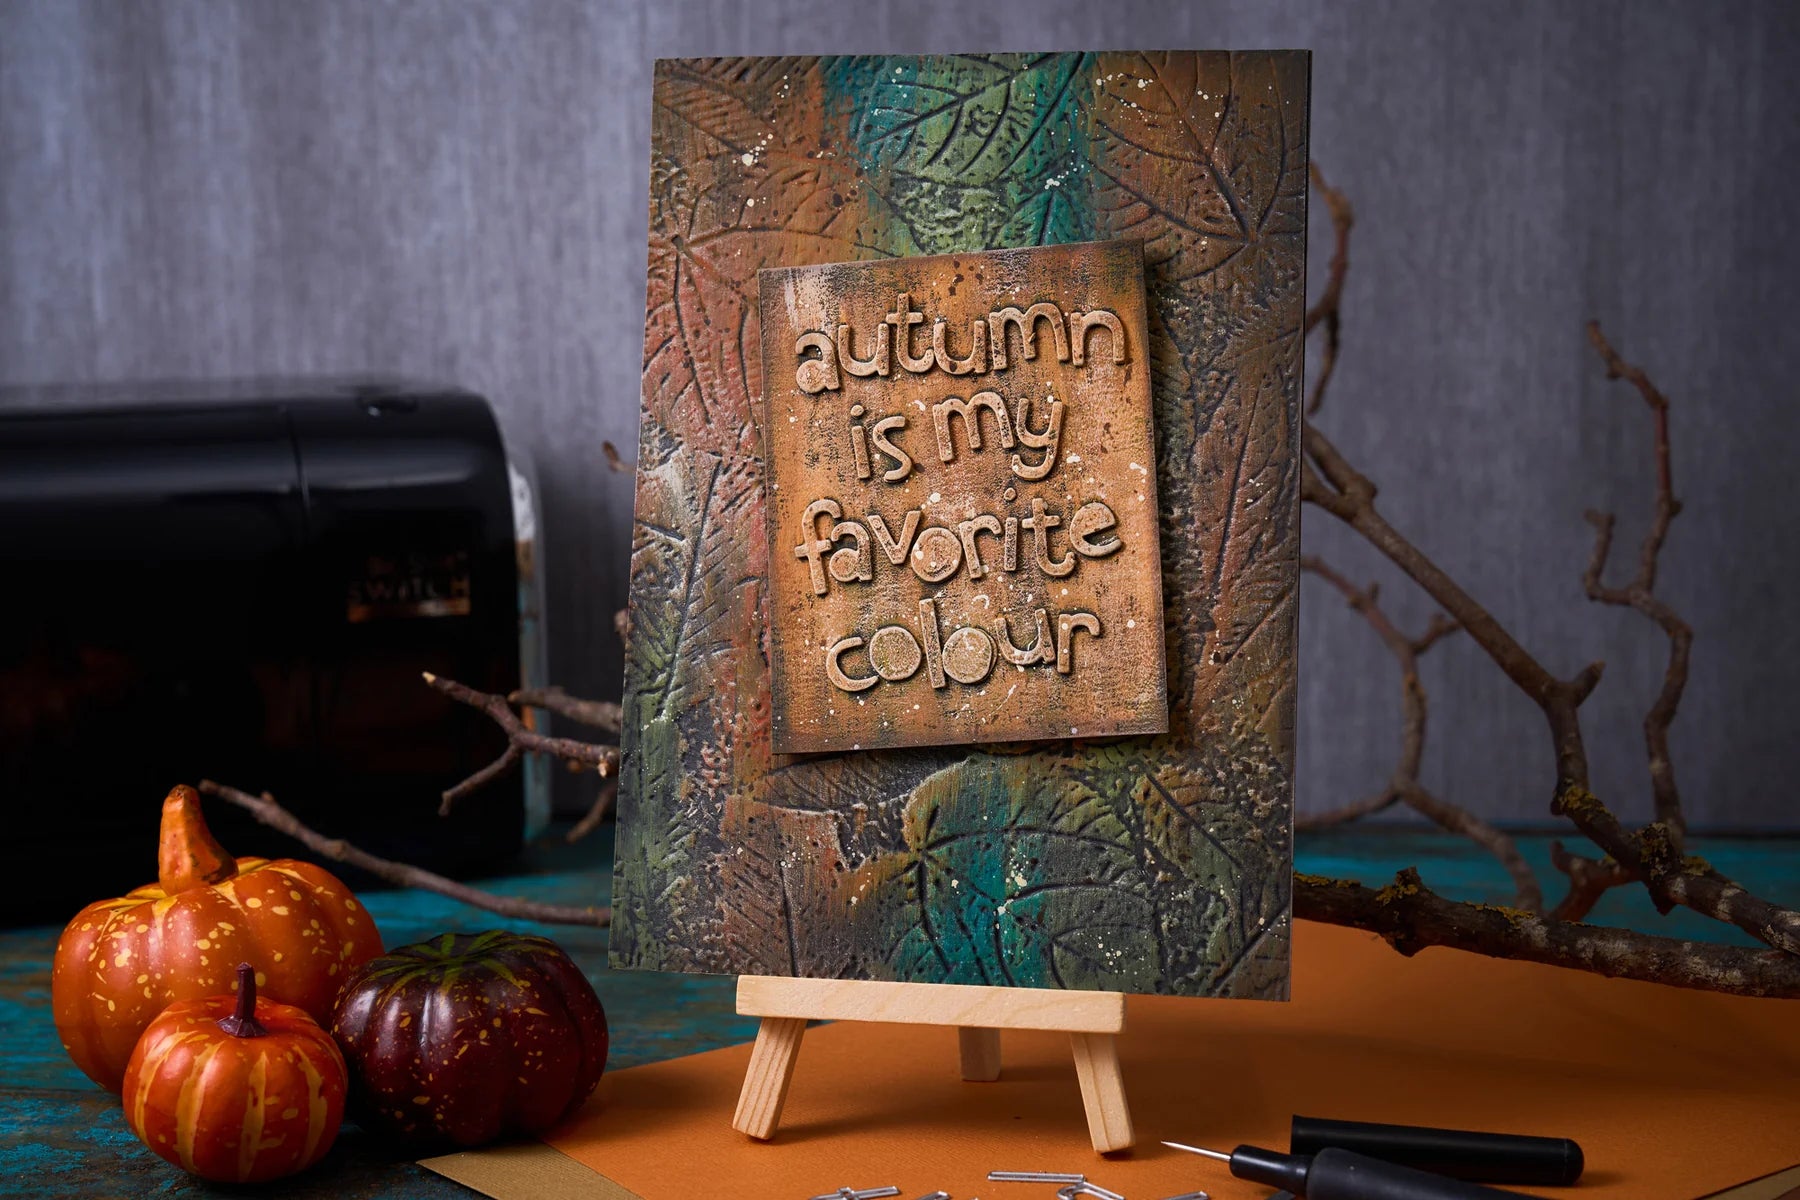 autumn
is my
favorite
colour
SWITCH